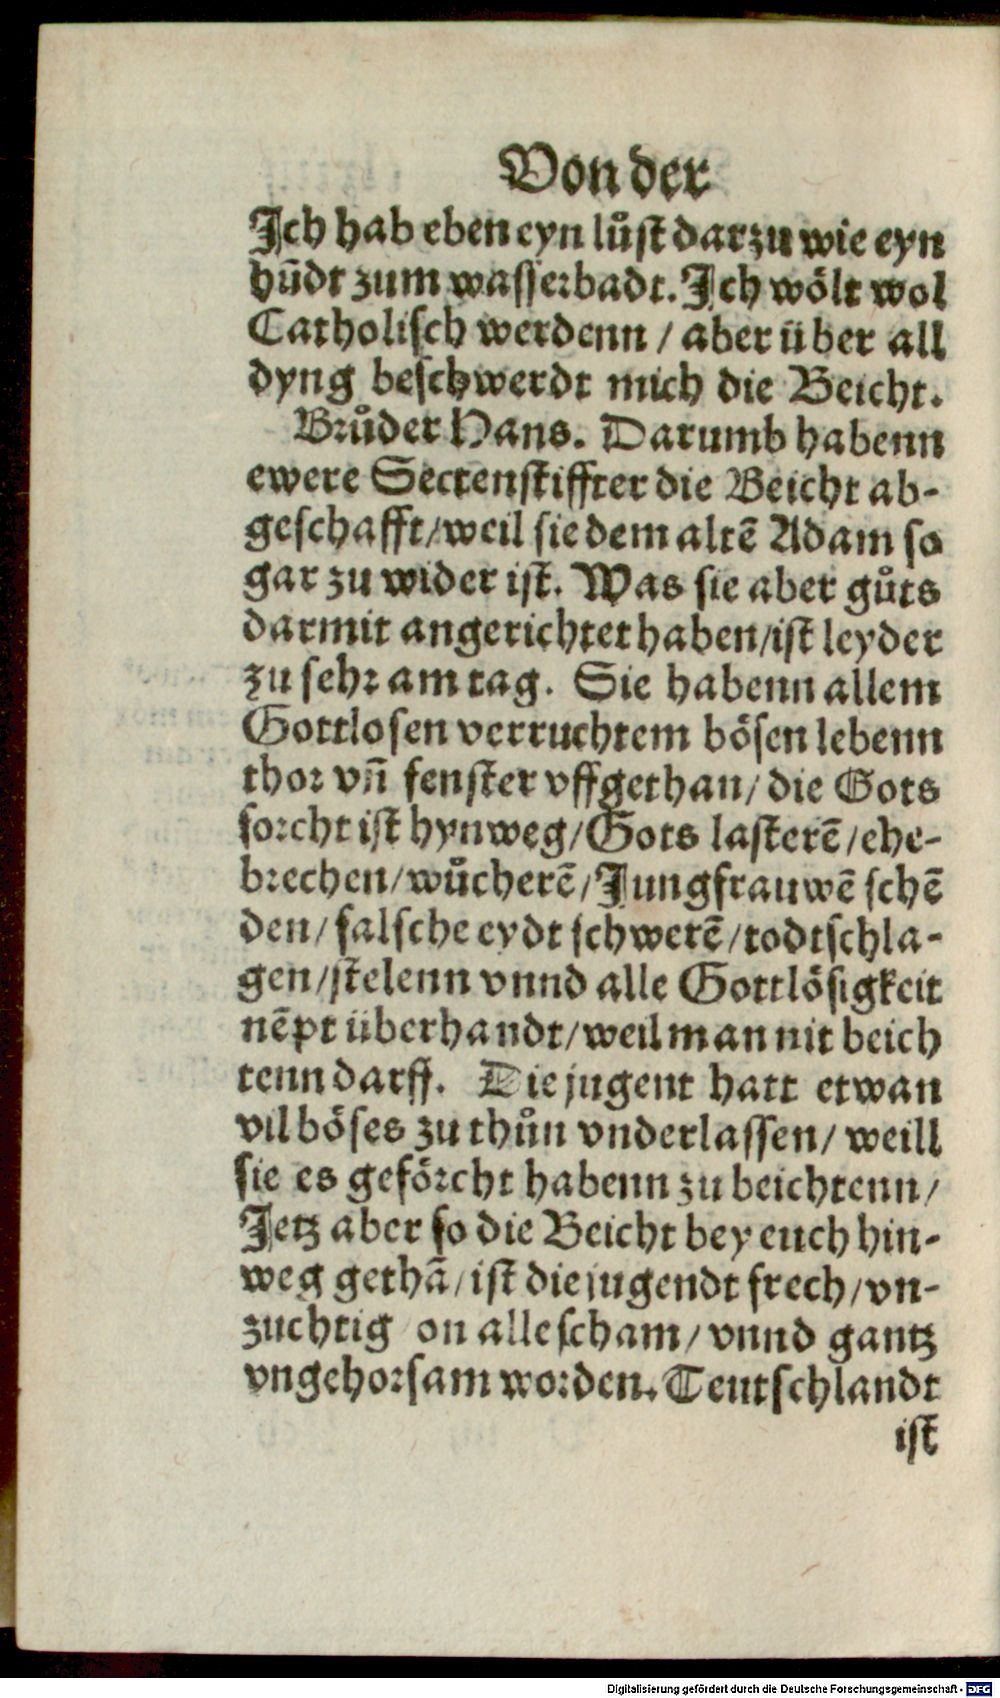 Von der
Ich hab eben eyn lůst darzu wie eyn
hūdt zum wasserbadt. Ich wölt wol
Catholisch werdenn / aber über all
dyng beschwerdt mich die Beicht.
Brůder Hans. Darumb habenn
ewere Sectenstiffter die Beicht ab-
geschafft/weil sie dem altē Adam so
gar zu wider ist. Was sie aber gůts
darmit angerichtet haben/ist leyder
zu sehr am tag. Sie habenn allem
Gottlosen verruchtem bösen lebenn
thor vñ fenster vffgethan/ die Gots
forcht ist hynweg/Gots lasterē/ehe-
brechen/wůcherē/Jungfrauwē schē
den/ falsche eydt schwerē/todtschla-
gen/stelenn vnnd alle Gottlösigkeit
nēpt überhandt/weil man nit beich
tenn darff. Die jugent hatt etwan
vil böses zu thůn vnderlassen/ weill
sie es geförcht habenn zu beichtenn/
Jetz aber so die Beicht bey euch hin-
weg gethā/ist die jugendt frech/vn-
zuchtig on alle scham/ vnnd gantz
vngehorsam worden. Teutschlandt
ist
Digitalisierung gefördert durch die Deutsche Forschungsgemeinschaft - DFG